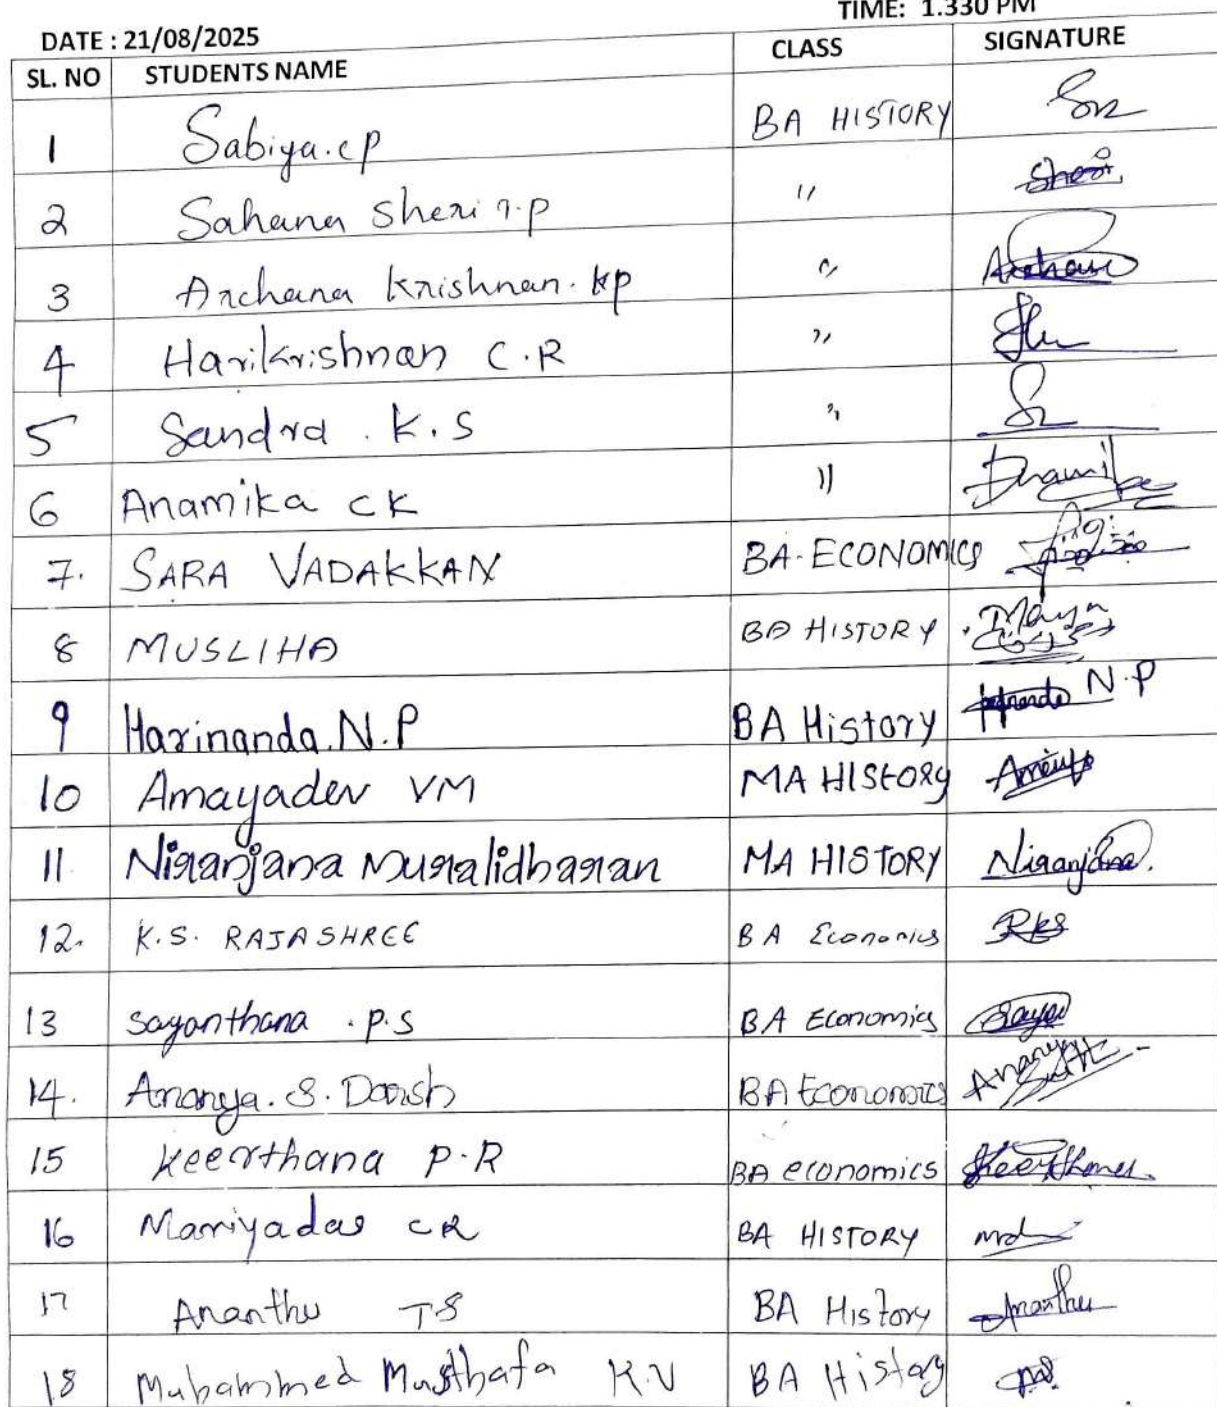 TIME: 1.330 PM
DATE : 21/08/2025
SL. NO STUDENTS NAME CLASS SIGNATURE
1 Sabiya.cp BA HISTORY
2 Sahana Sheri T.P " Sheri
3 Archana Krishnan. kp " Archana
4 Harikrishnan C.R "
5 Sandra . K.S "
6 Anamika CK " Anamika
7. SARA VADAKKAN BA-ECONOMICS
8 MUSLIHA BA HISTORY
9 Harinanda.N.P BA History N.P
10 Amayadev VM MA HIStORy
11 Niranjana Muralidharan MA HISTORY Niranjana.
12. K.S. RAJASHREE BA Economics RKS
13 sayanthana . P.S BA Economics Sayu
14. Ananya. S. Darsh BA Economics Ananya
15 Keerthana P.R BA economics Keerthana.
16 Mariyadas CR BA HISTORY
17 Ananthu TS BA History Ananthu
18 Muhammed Musthafa K.V BA History